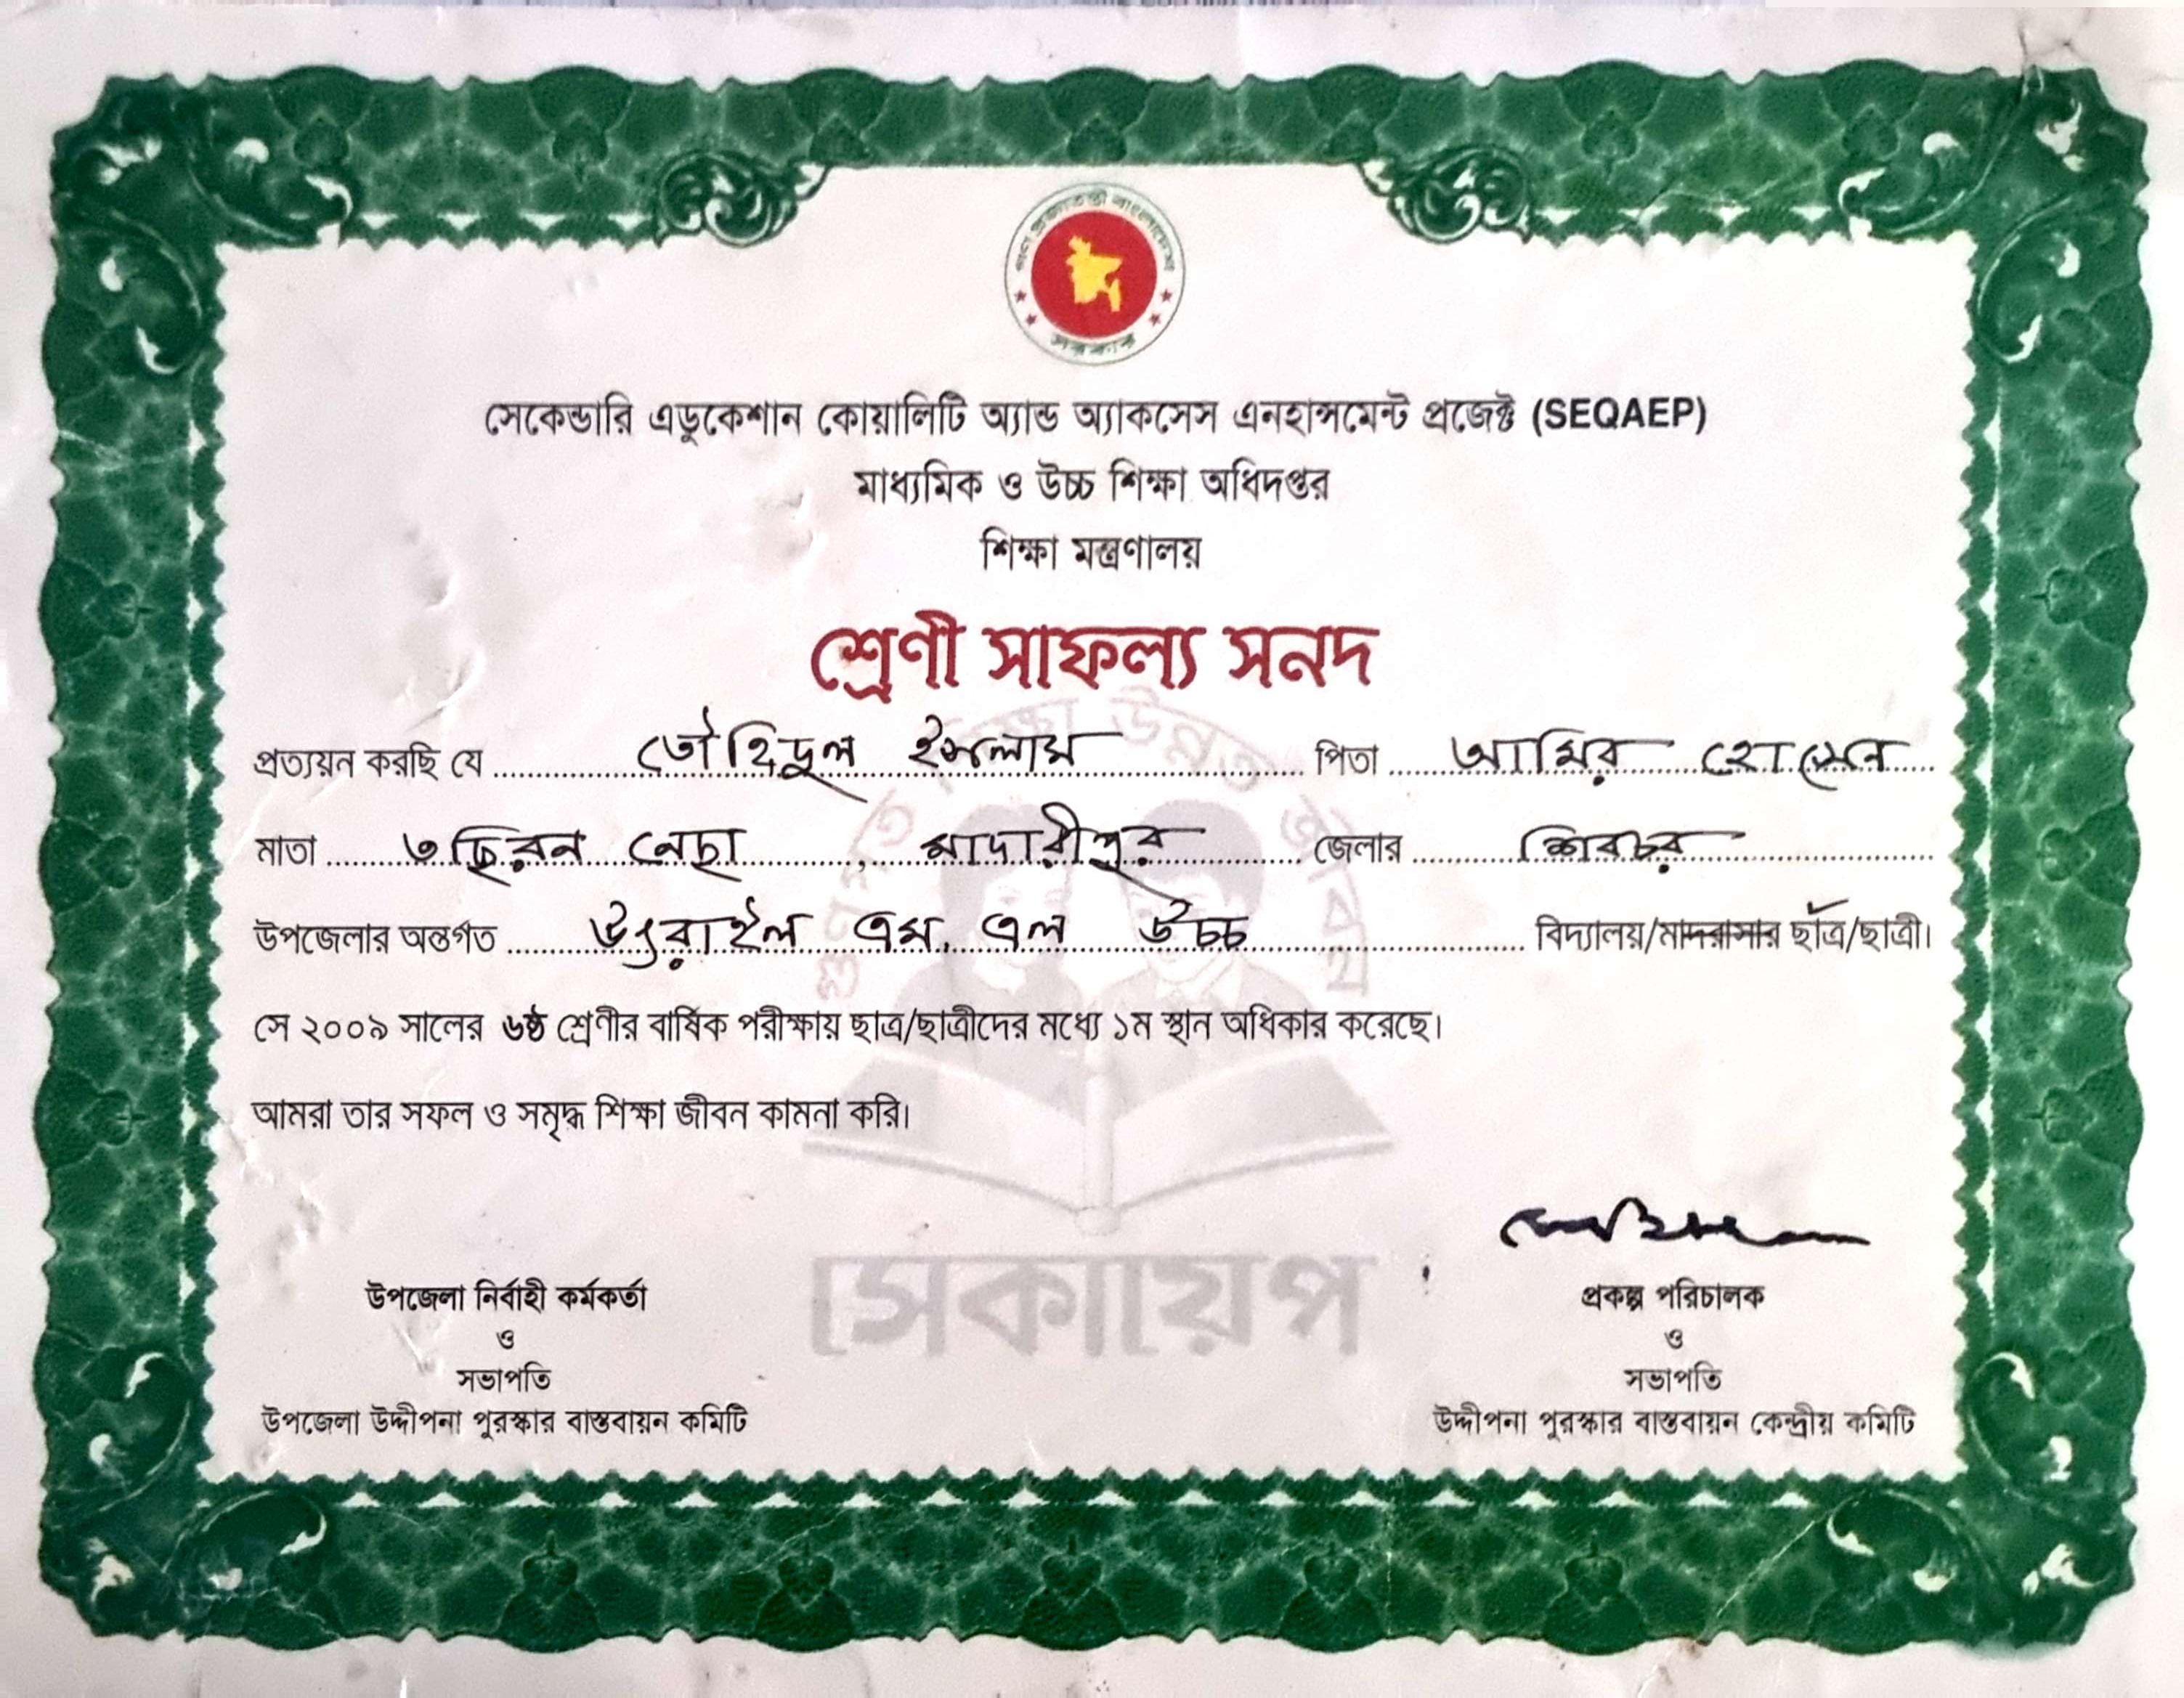 গণপ্রজাতন্ত্রী বাংলাদেশ
সরকার
সেকেন্ডারি এডুকেশান কোয়ালিটি অ্যান্ড অ্যাকসেস এনহান্সমেন্ট প্রজেক্ট (SEQAEP)
মাধ্যমিক ও উচ্চ শিক্ষা অধিদপ্তর
শিক্ষা মন্ত্রণালয়
শ্রেণী সাফল্য সনদ
প্রত্যয়ন করছি যে তৌহিদুল ইসলাম পিতা আমির হোসেন
মাতা ওছিরন নেছা, মাদারীপুর জেলার শিবচর
উপজেলার অন্তর্গত উৎরাইল এম. এল উচ্চ বিদ্যালয়/মাদরাসার ছাত্র/ছাত্রী।
সে ২০০৯ সালের ৬ষ্ঠ শ্রেণীর বার্ষিক পরীক্ষায় ছাত্র/ছাত্রীদের মধ্যে ১ম স্থান অধিকার করেছে।
আমরা তার সফল ও সমৃদ্ধ শিক্ষা জীবন কামনা করি।
সেকায়েপ
উপজেলা নির্বাহী কর্মকর্তা
ও
সভাপতি
উপজেলা উদ্দীপনা পুরস্কার বাস্তবায়ন কমিটি
প্রকল্প পরিচালক
ও
সভাপতি
উদ্দীপনা পুরস্কার বাস্তবায়ন কেন্দ্রীয় কমিটি